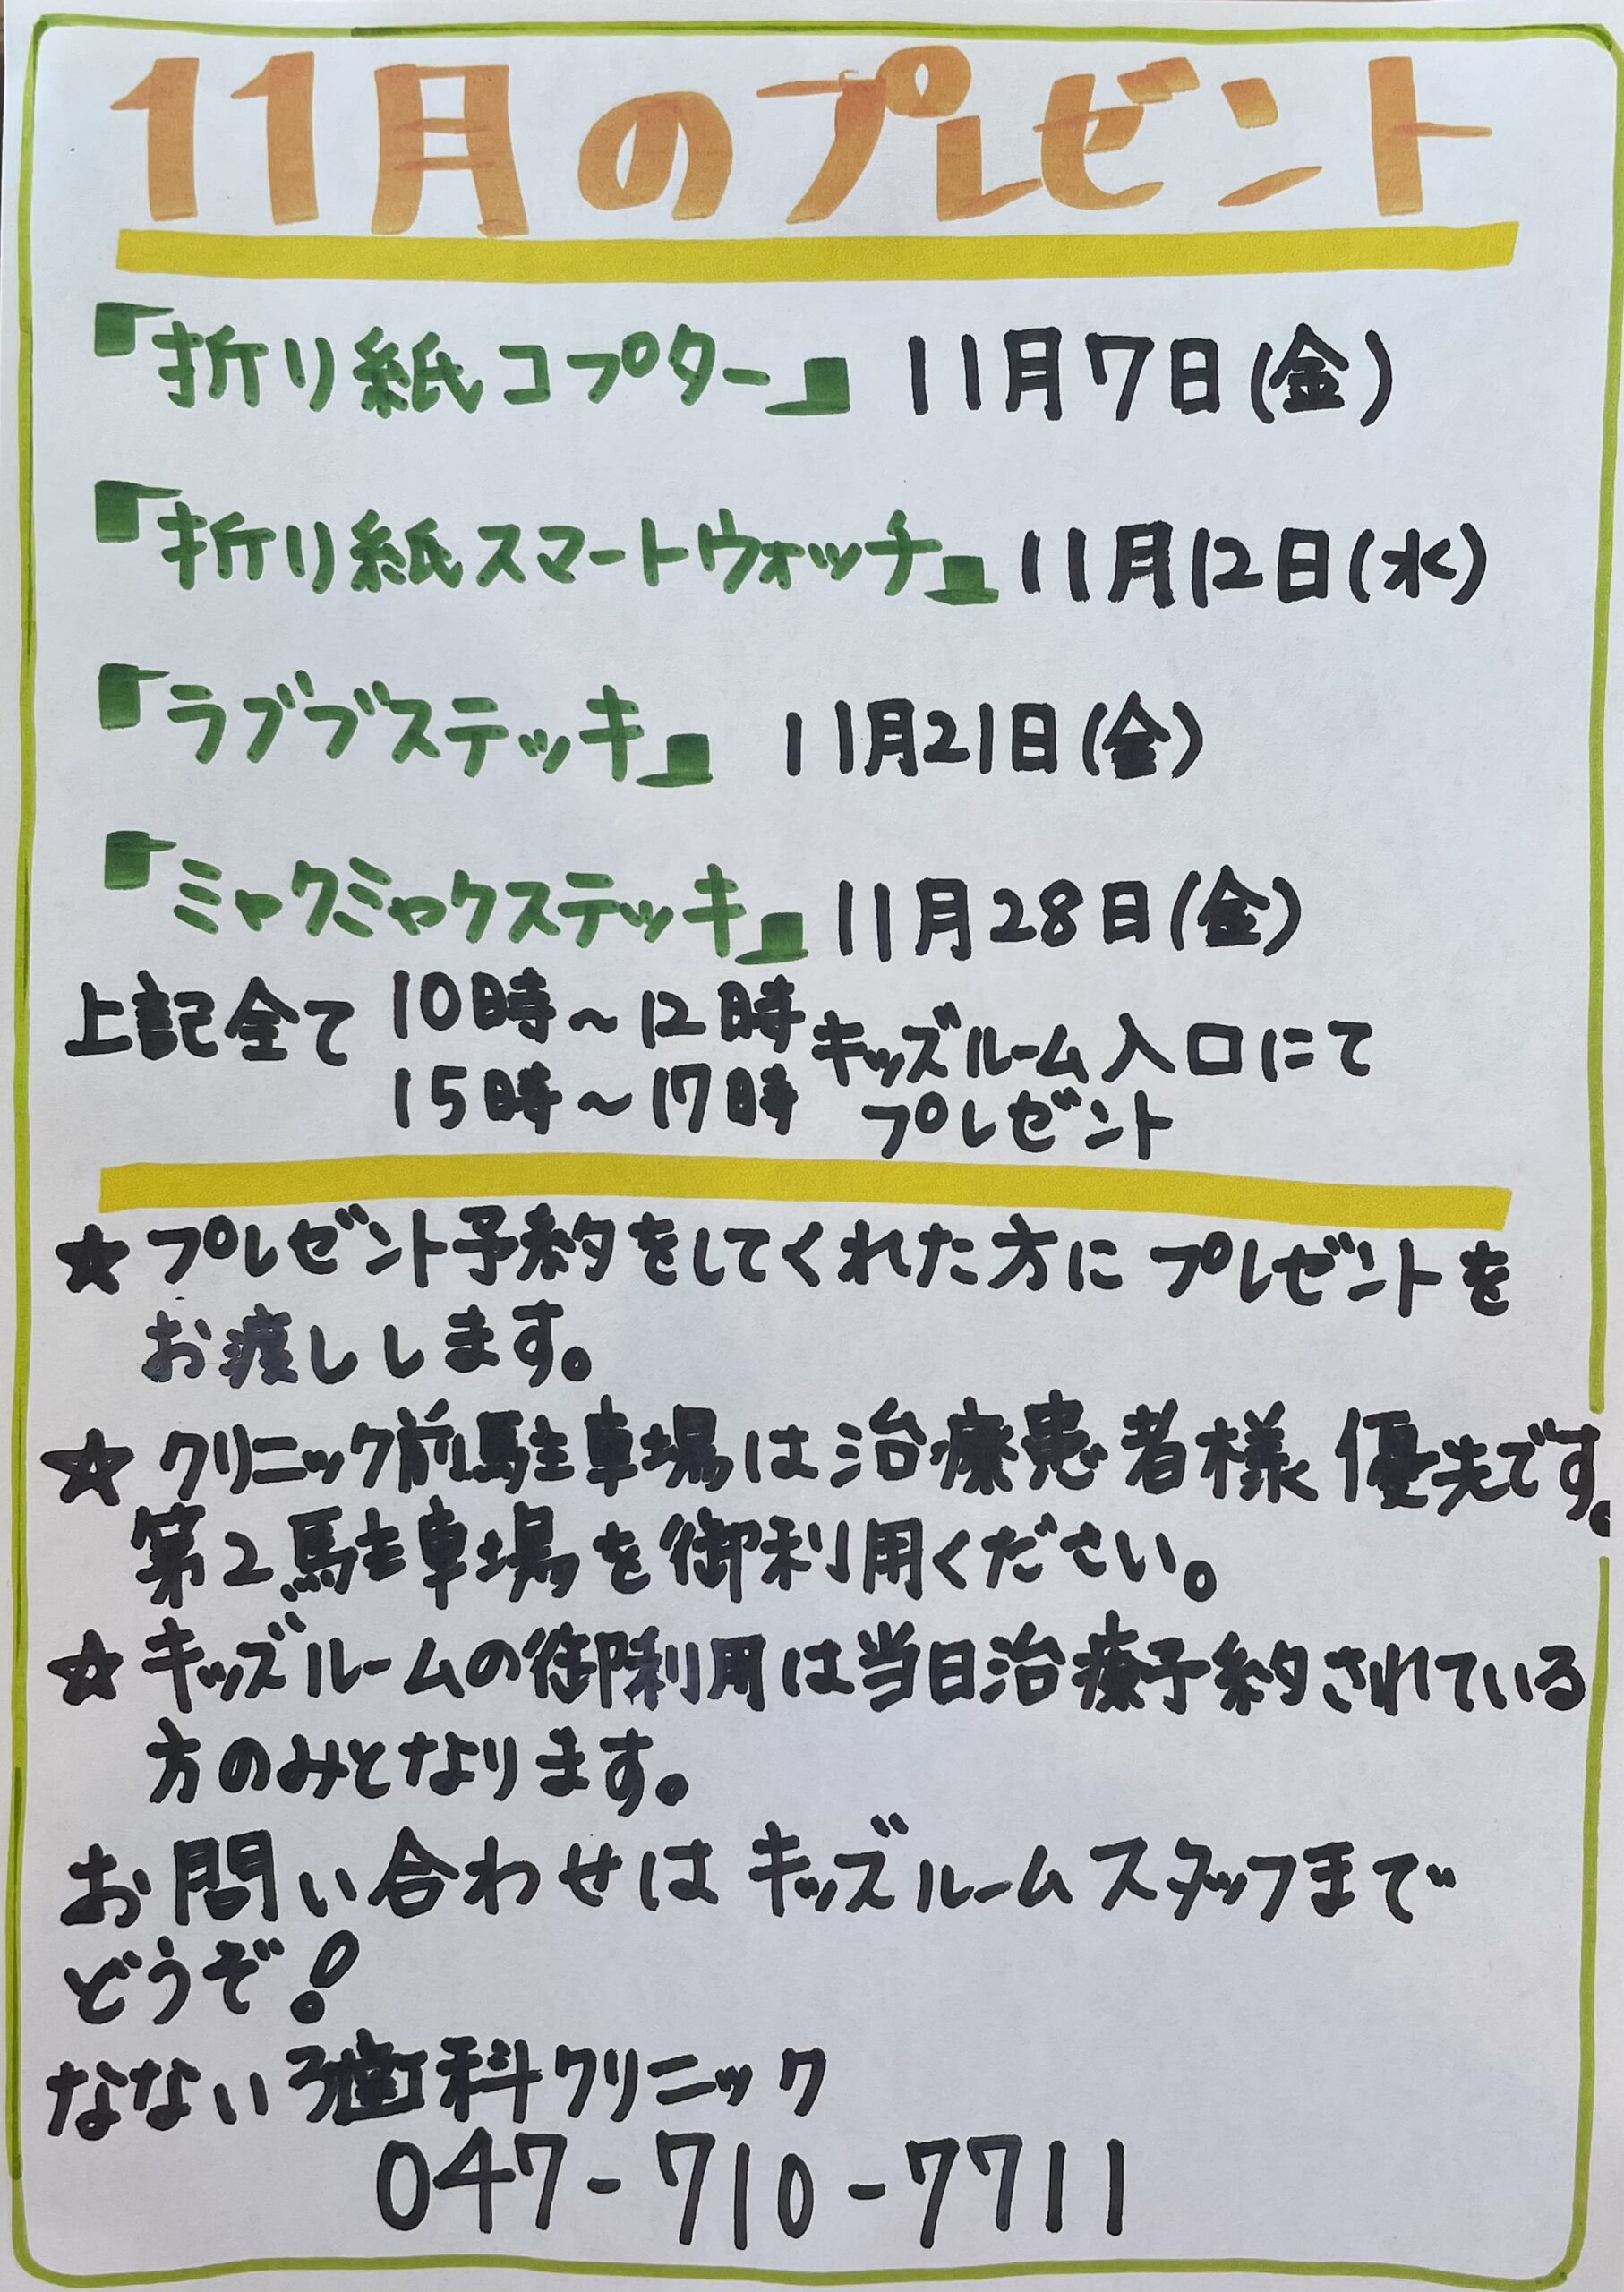 11月のプレゼント
『折り紙コプター』 11月7日(金)
『折り紙スマートウォッチ』 11月12日(水)
『ラブブステッキ』 11月21日(金)
『ミャクミャクステッキ』 11月28日(金)
上記全て 10時～12時 キッズルーム入口にて
15時～17時 プレゼント
☆プレゼント予約をしてくれた方にプレゼントを
お渡しします。
☆クリニック前駐車場は治療患者様優先です。
第2駐車場を御利用ください。
☆キッズルームの御利用は当日治療予約されている
方のみとなります。
お問い合わせはキッズルームスタッフまで
どうぞ!
なないろ歯科クリニック
047-710-7711